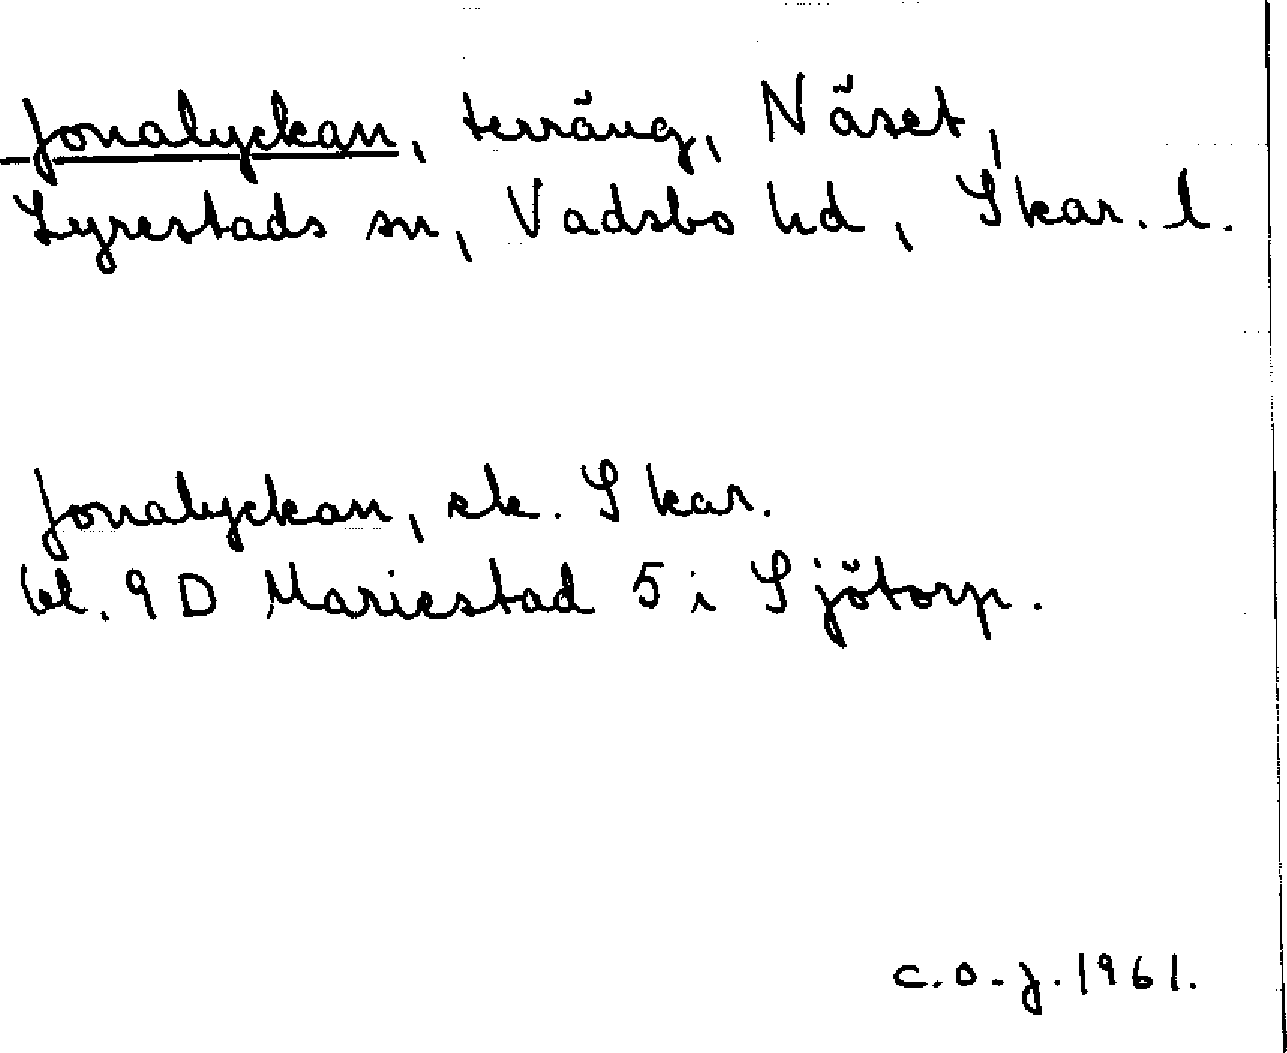 Jonalyckan, terräng, Näset,
Lyrestads sn, Vadsbo hd, Skar. l.
Jonalyckan, ek. Skar.
bl. 9 D Mariestad 5 i Sjötorp.
C.O.J. 1961.